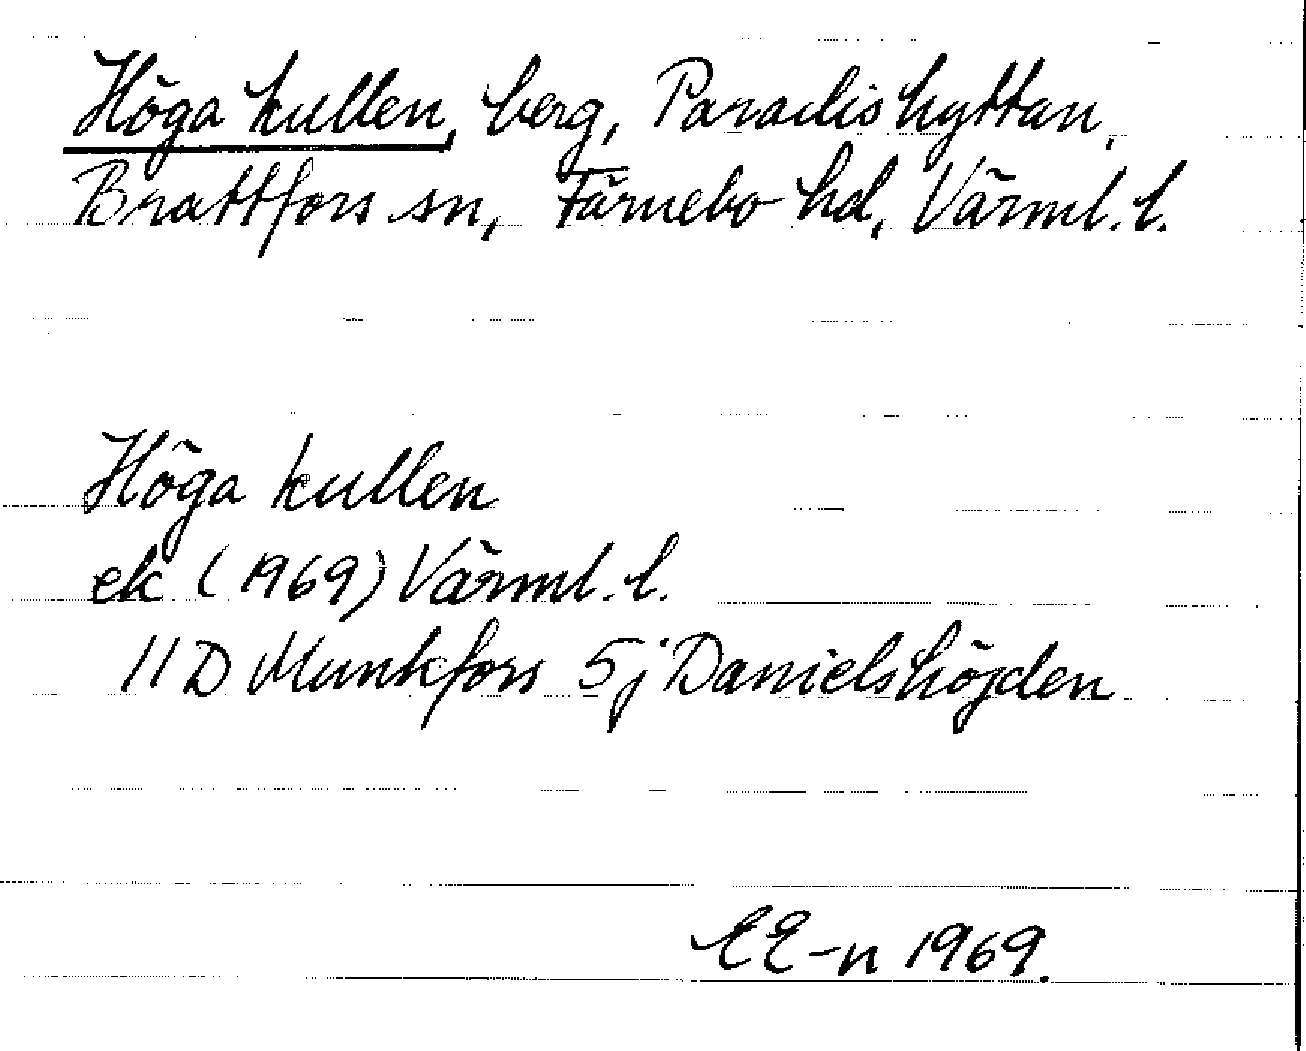 Höga kullen, berg, Paradishyttan,
Brattfors sn, Färnebo hd, Värml. l.
Höga kullen
ek (1969) Värml. l.
11D Munkfors 5j Danielshöjden
EE-n 1969.